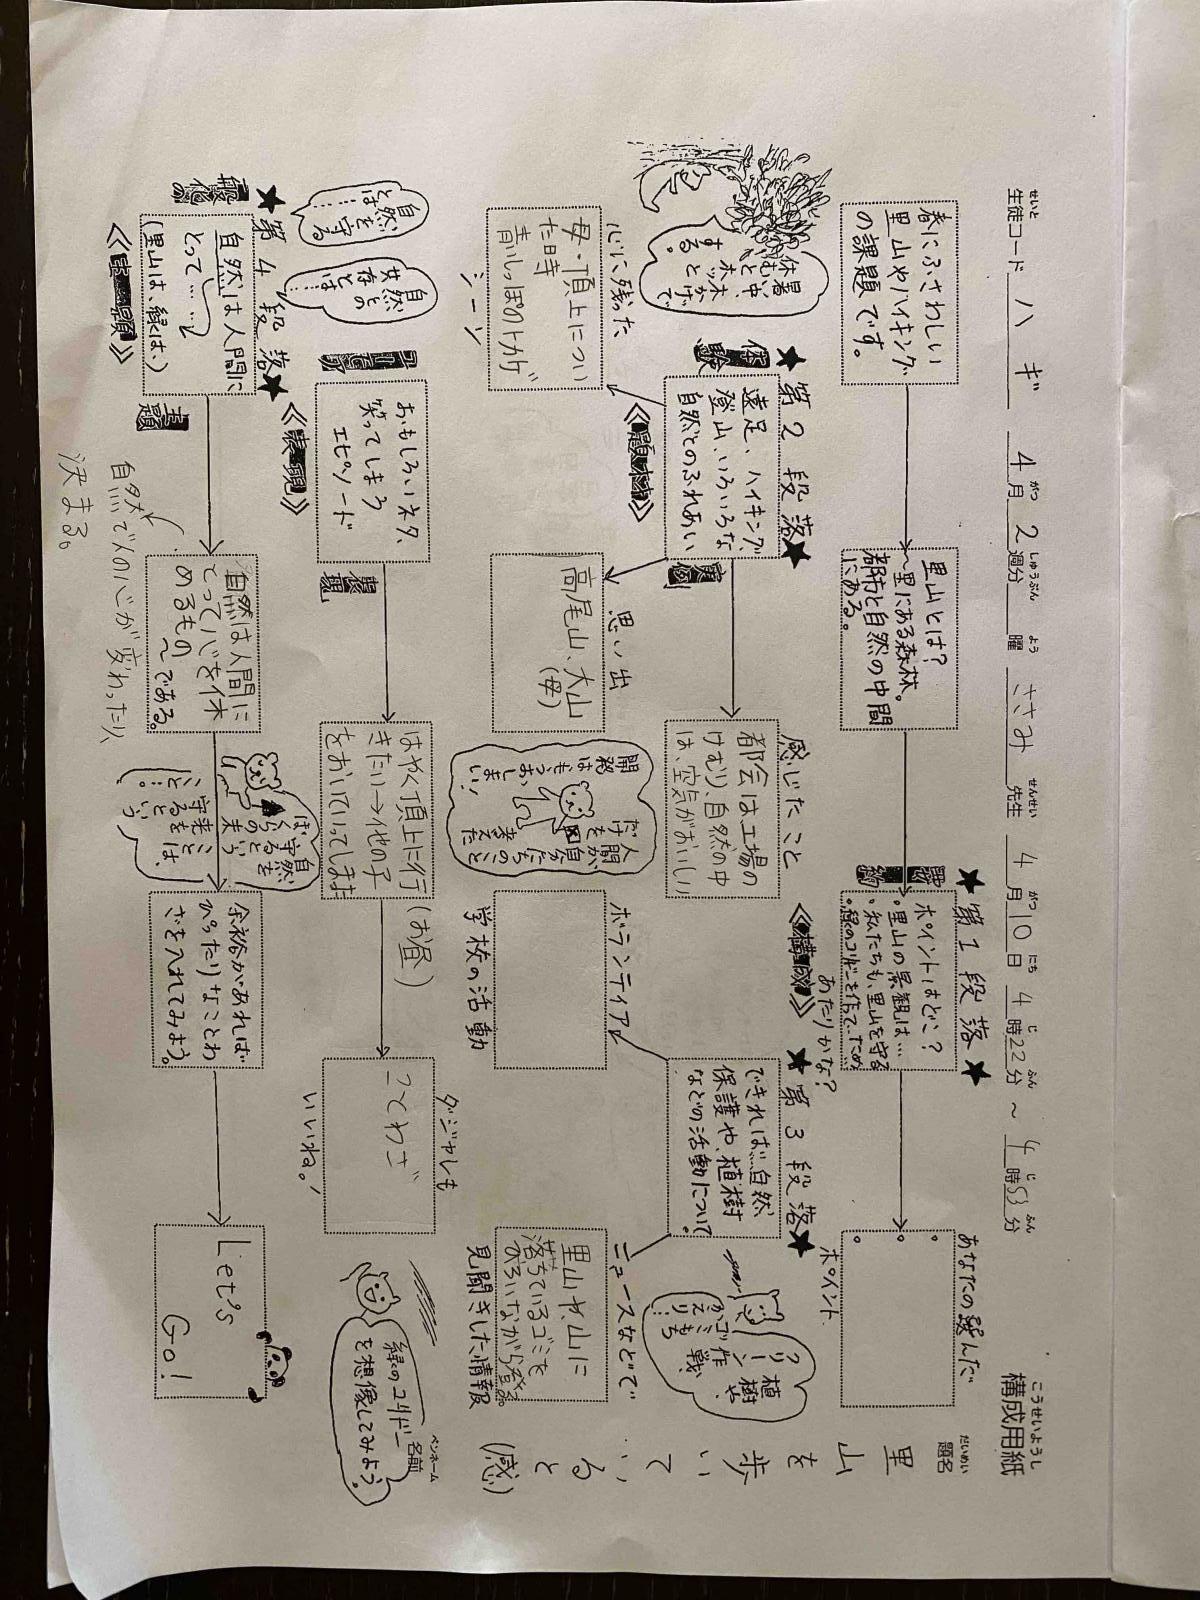 構成用紙
こうせいようし
題名
だいめい
里山を歩いていると(感)
名前
ペンネーム
せいと
生徒コード ハ ギ 4月 2週分 曜 ささみ 先生 4月10日 4時22分 ~ 4時53分
がつ しゅうぶん よう せんせい がつ にち じ ふん じ ふん
春にふさわしい
里山やハイキング
の課題です。
里山とは?
~里にある森林。
都市と自然の中間
にある。
★第1段落★
要約
ポイントはどこ?
・里山の景観は…
・私たちも、里山を守る
あたりかな?
あなたの選んだ
ポイント
《構成》
休むと中、
木かげで
ホッとする。
★第2段落★
体験
遠足、ハイキング、
登山、いろいろな
自然とのふれあい
《題材》
実例
心に残った
シーン
母・頂上につい
た時
青いしっぽのトカゲ
思い出
高尾山、大山
(母)
感じたこと
都会は工場の
けむり、自然の中
は、空気がおいしい
開発はもうおしまい!
人間が、自分たちのこと
だけを考えた
★第3段落★
できれば自然
保護や、植樹
などの活動について。
ボランティア
学校の活動
ニュースなどで
見聞きした情報
里山や、山に
落ちているゴミを
ひろいながら登る。
植樹や
クリーン作戦、
ゴミもちかえり!…
ユーモア
おもしろいネタ、
笑ってしまう
エピソード
《表現》
表現
はやく頂上に行
きたい→他の子
をおいていってしまた
(お昼)
ことわざ
ダジャレも
いいね。!
緑のコリドー
を想像してみよう。
自然を守る
とは……
自然との
共存とは…
★第4段落★
一般化の
主題
自然は人間に
とって……
(里山は、緑は、)
《主題》
自然は人間に
とって心を休
めるもの
~である。
自然で人の心が変わったり、
決まる。
自然を
守るという
ことは、
ぼくらの未来を
守るという
こと…。
余裕があれば
ぴったりなことわ
ざを入れてみよう。
Let's
Go!